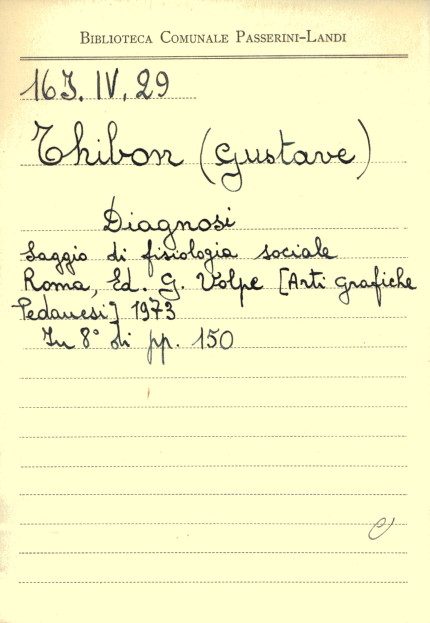 BIBLIOTECA COMUNALE PASSERINI-LANDI
16J. IV. 29
Thibon (Gustave)
Diagnosi
Saggio di fisiologia sociale
Roma, Ed. G. Volpe [Arti grafiche
Pedanesi] 1973
In 8° di pp. 150